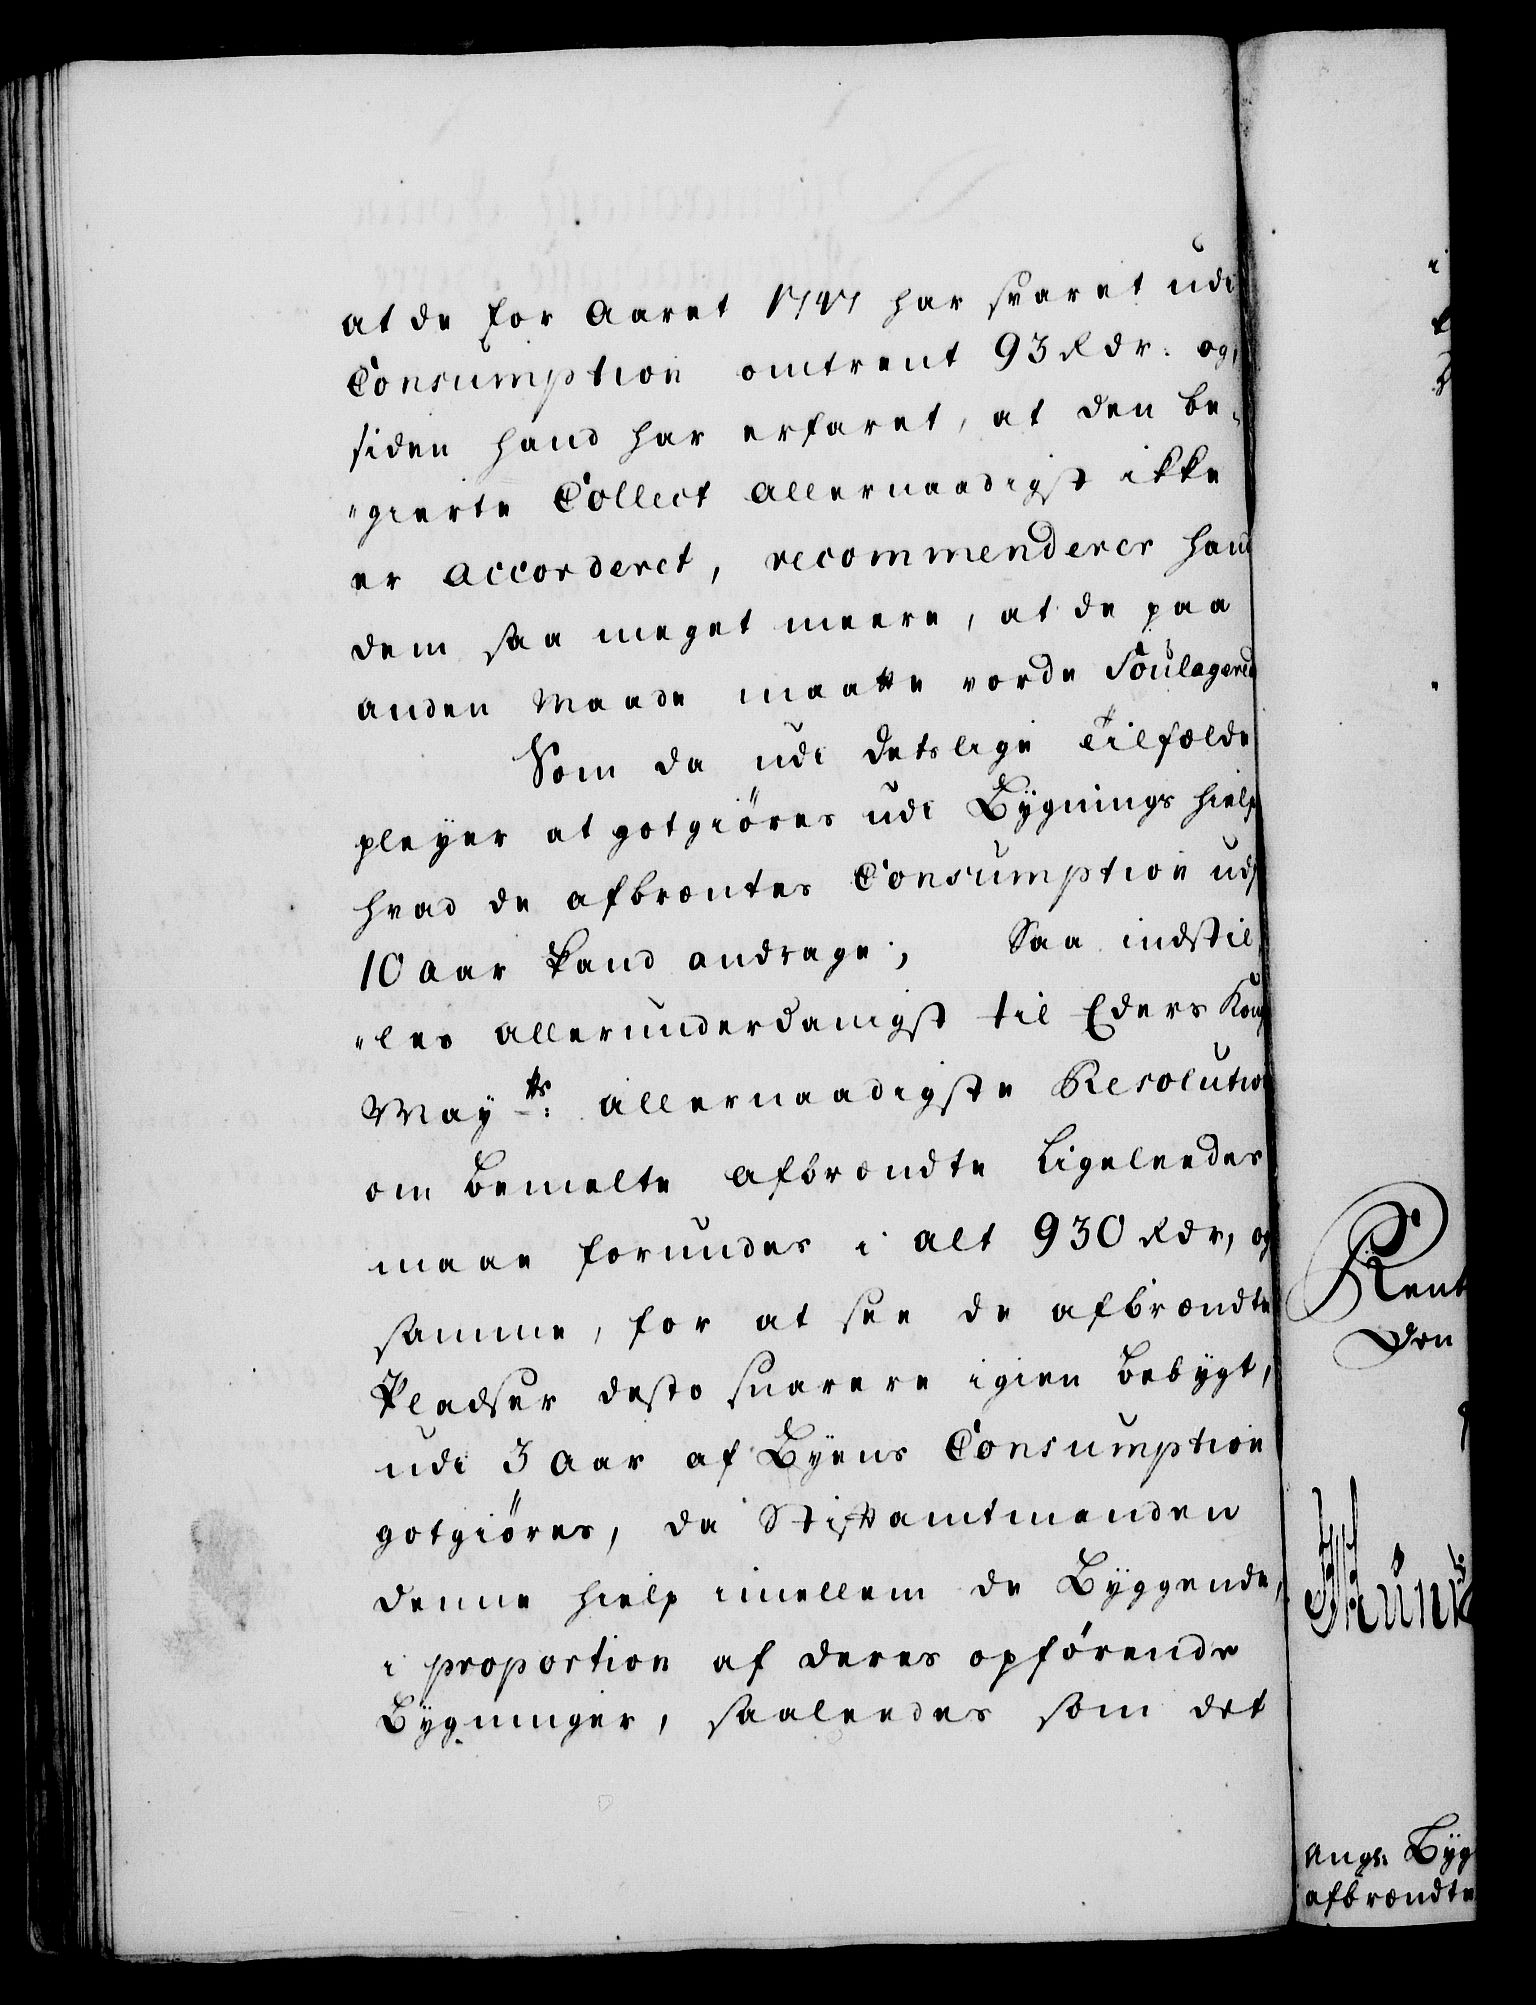 at de for Aaret 1747 har svaret udi
Consumption omtrent 93 Rdr. og,
siden hand har erfaret, at den be-
"gierte Collect Allernaadigst ikke
er Accorderet, recommenderer hand
dem saa meget meere, at de paa
anden Maade maatte vorde Soulagered
Som da udi detslige Tilfælde
pleyer at gotgiöres udi Bÿgnings hielp
hvad de afbræntes Consumption udj
10 Aar kand andrage; Saa indstil,
"les Allerunderdanigst til Eders Kong
Mayts: Allernaadigste Resolution
om bemelte Afbrændte Ligeleedes
maae forundes i alt 930 Rdr, og
samme, for at see de afbrændte
Pladser desto snarere igien bebÿgt,
udi 3 Aar af Bÿens Consumption
gotgiöres, da Stiftamtmanden
denne hielp imellem de Bÿggende,
i proportion af deres opførende
Bÿgninger, saaleedes som det
Rent
Den
Ang: Bÿg
afbrændte